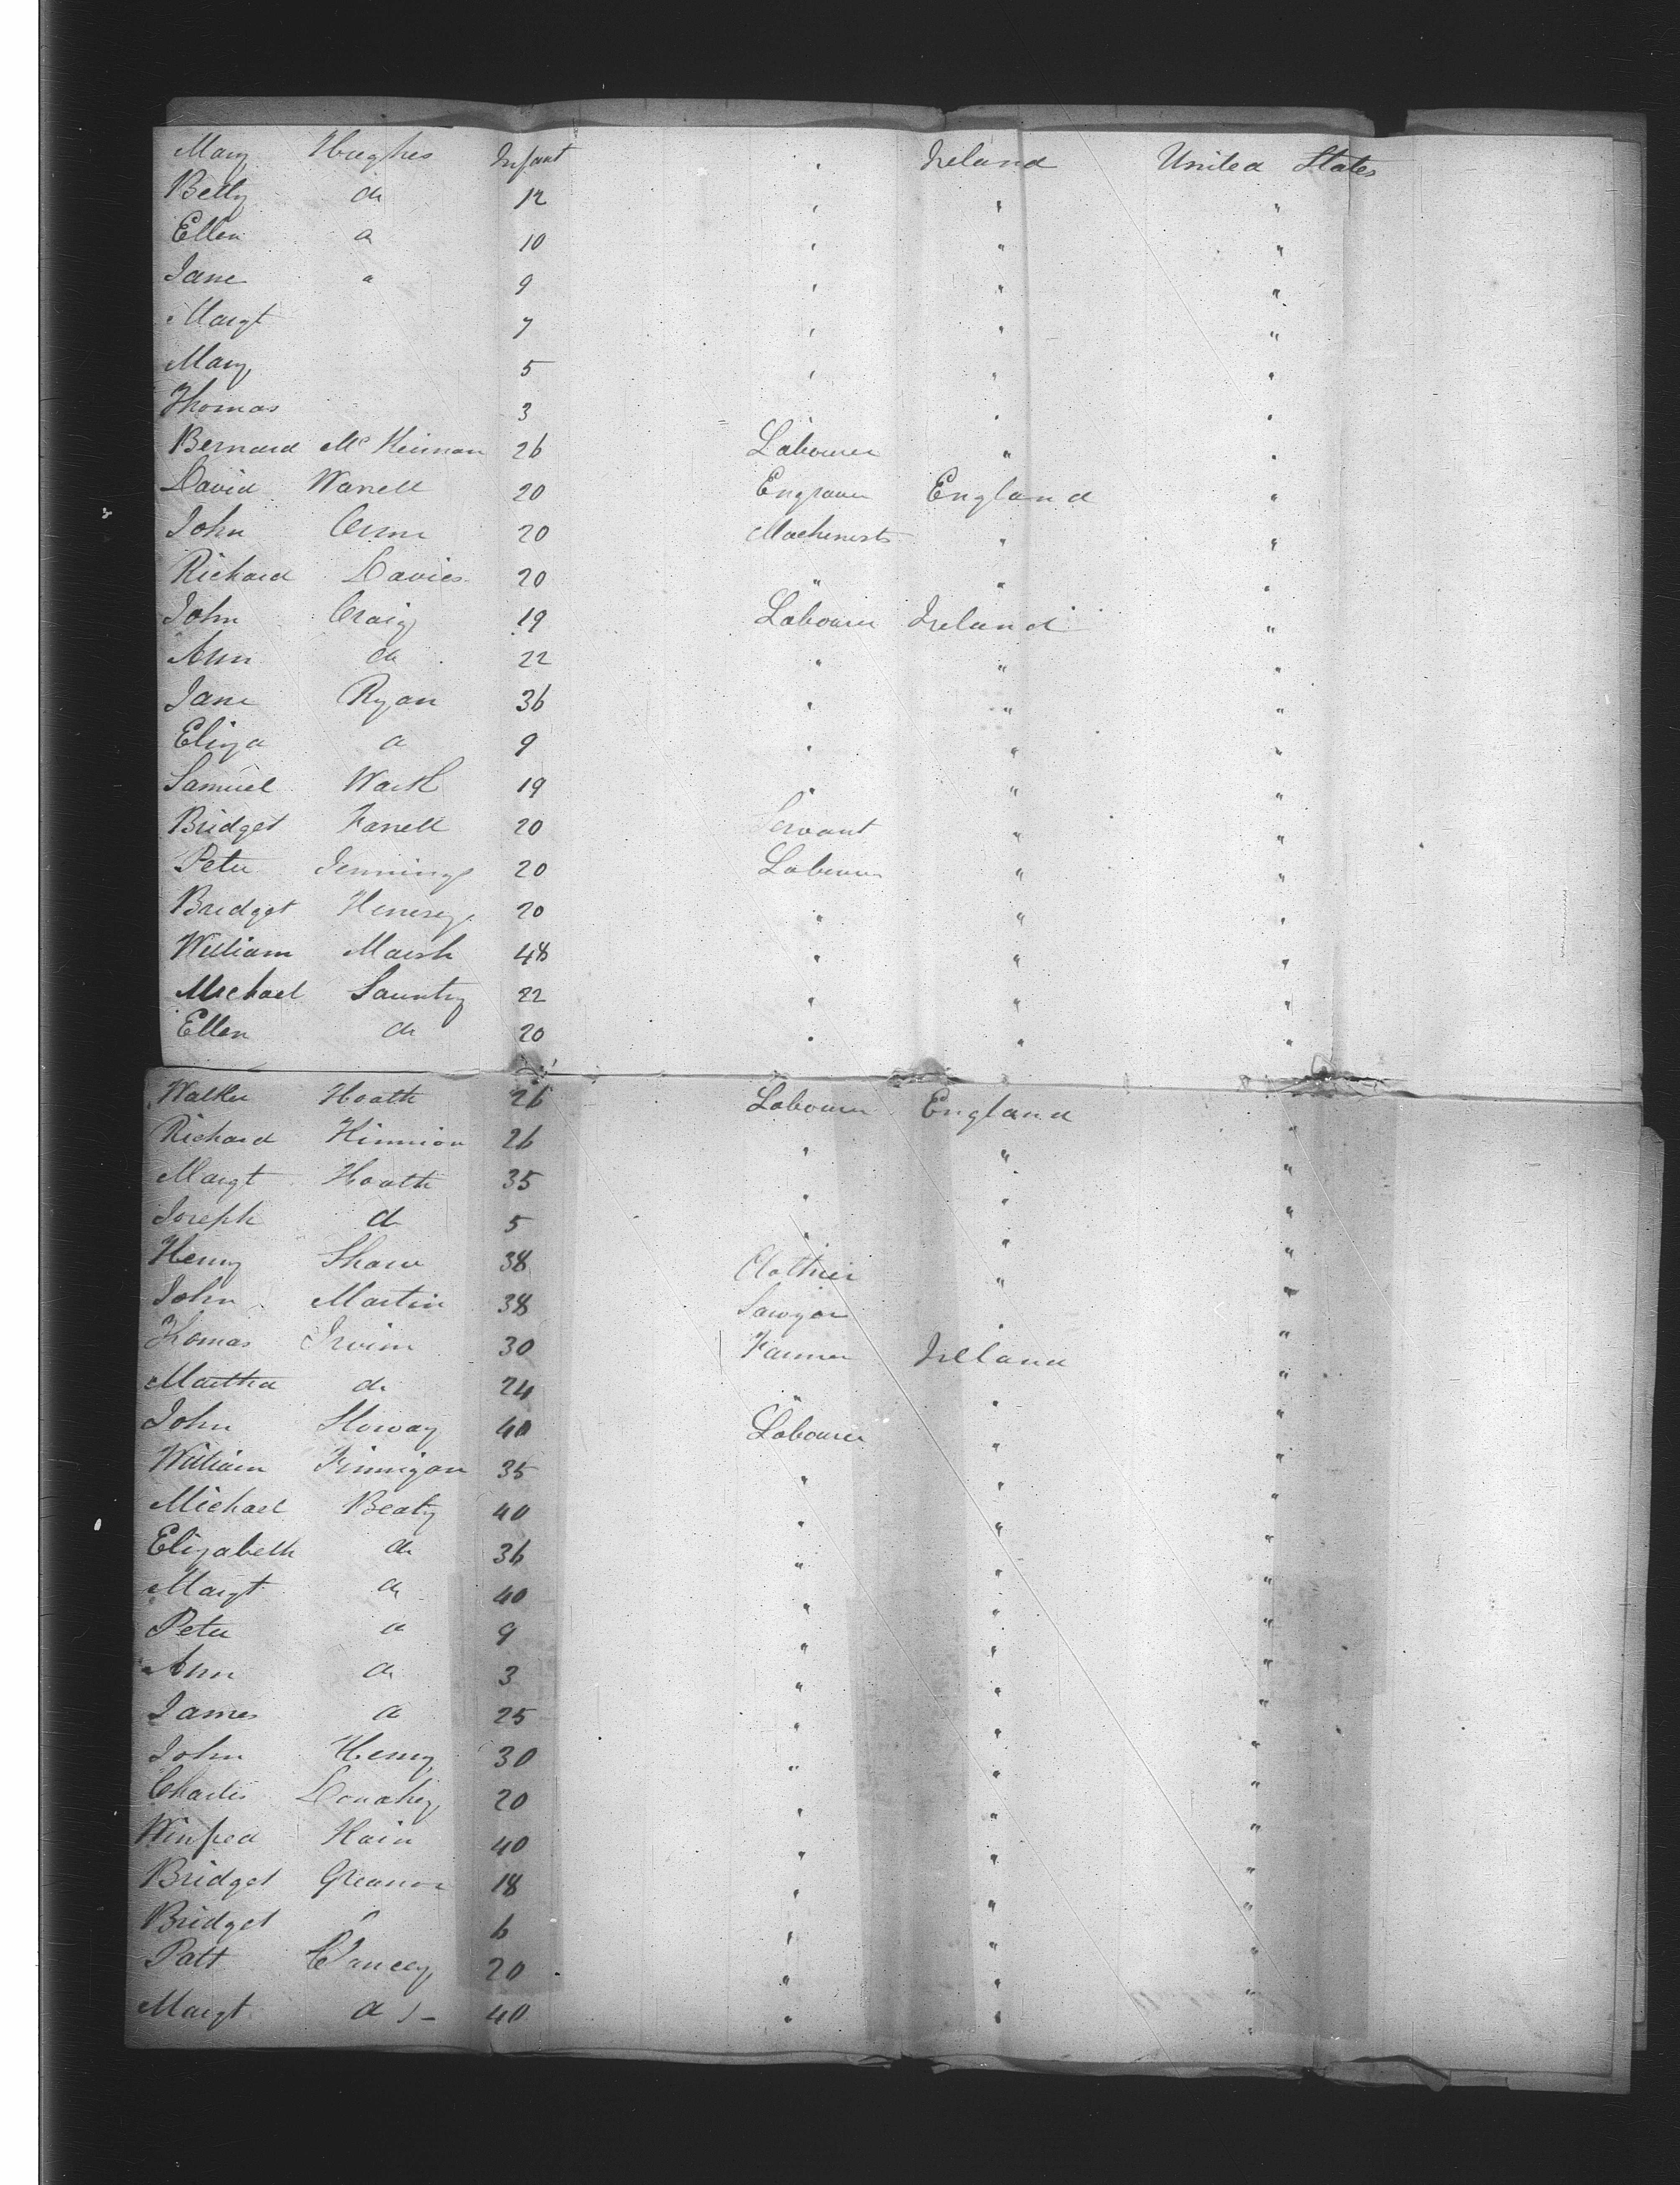 Mary Hughes Infant " Ireland United States
Betty do 12 " " "
Ellen do 10 " " "
Jane " 9 " " "
Margt 7 " " "
Mary 5 " " "
Thomas 3 " "
Bernard Mc Kiernan 26 Labourer " "
David Warrell 20 Engraver England "
John Orme 20 Machinists " "
Richard Davies 20 " " "
John Craig 19 Labourer Ireland "
Ann do 22 " " "
Jane Ryan 36 " " "
Eliza do 9 " " "
Samuel 19 " " "
Bridget Farrell 20 Servant " "
Peter Jennings 20 Labourer " "
Bridget 20 " " "
William Marsh 48 " " "
Michael Sauntry 22 " " "
Ellen do 20 " " "
Walker Hoath 26 Labourer England "
Richard 26 " " "
Margt Hoath 35 " " "
Joseph do 5 " " "
Henry Shaw 38 Clothier " "
John Martin 38 Sawyer " "
Thomas Irvin 30 Farmer Ireland "
Martha do 24 " " "
John 40 Labourer " "
William Finnigan 35 " " "
Michael Beaty 40 " " "
Elizabeth do 36 " " "
Margt do 40 " " "
Peter do 9 " " "
Ann do 3 " " "
James do 25 " " "
John Henry 30 " " "
Charles Donahey 20 " " "
Winfred Kain 40 " " "
Bridget 18 " " "
Bridget " 6 " " "
Patt Clancey 20 " " "
Margt do 40 " " "